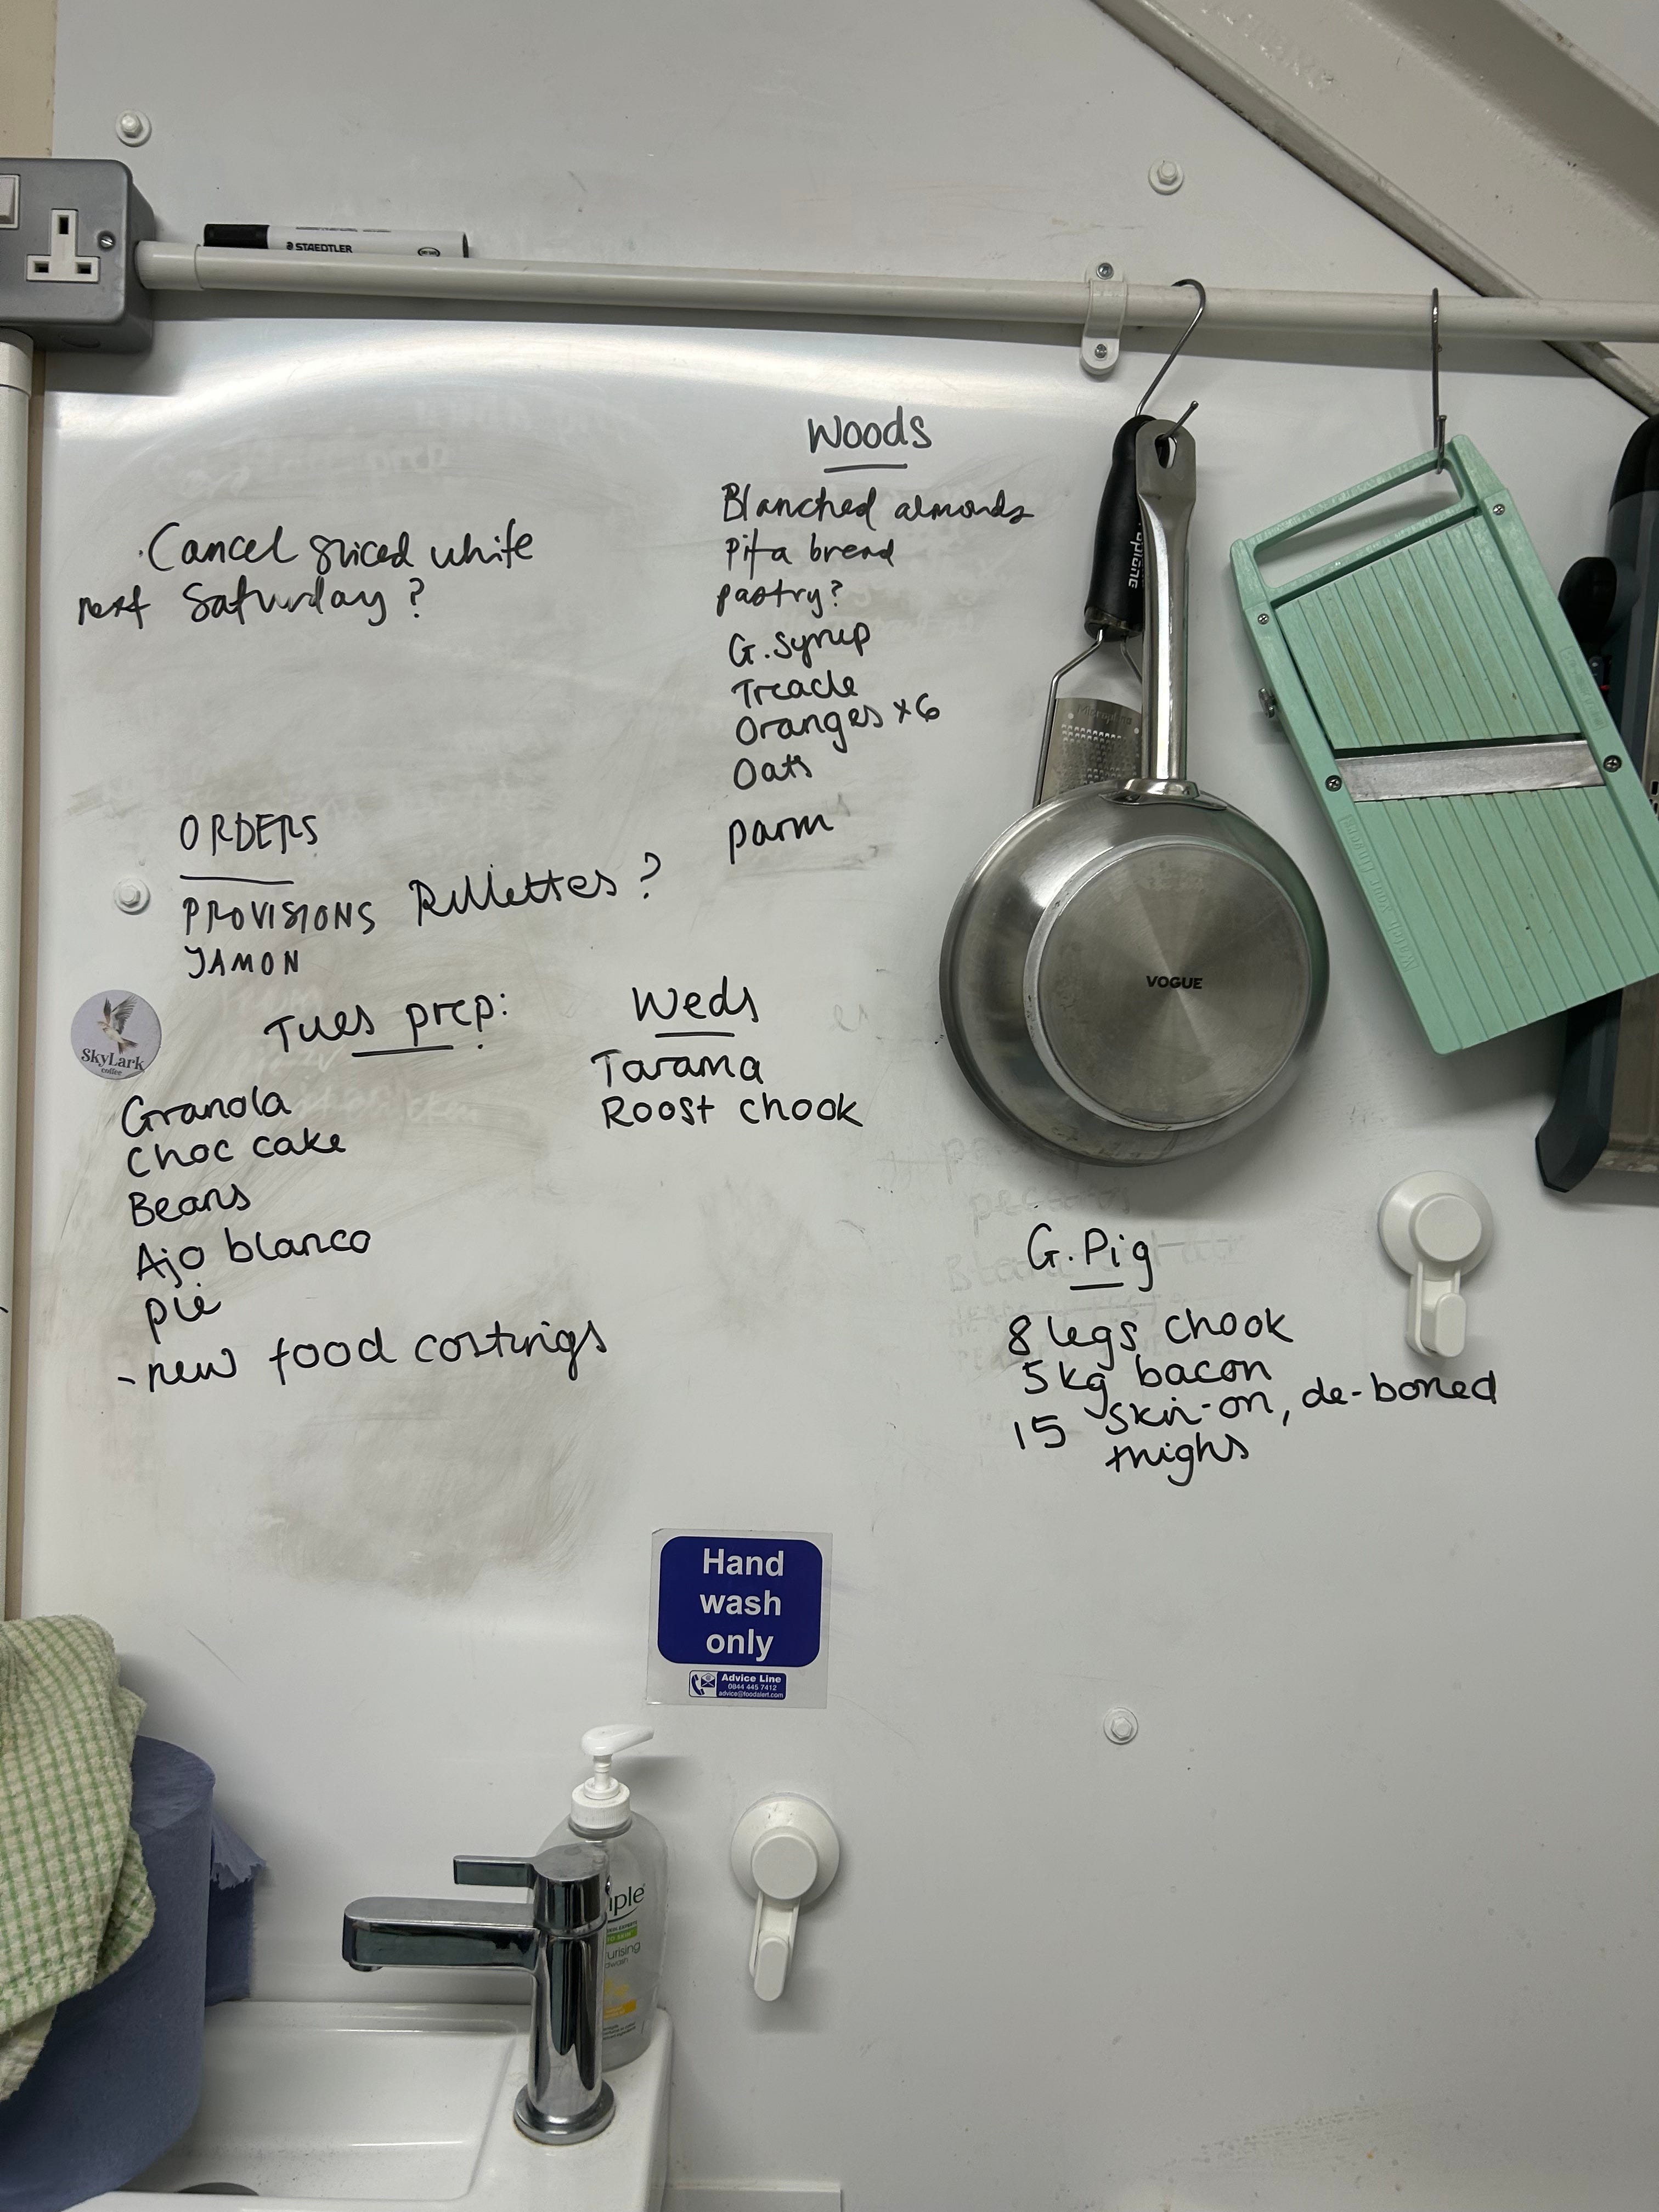 STAEDTLER
Woods
Blanched almonds
Pita bread
pastry?
G. Syrup
Treacle
Oranges x6
Oats
parm
Cancel sliced white
next Saturday?
ORDERS
PROVISIONS Rillettes?
JAMON
SkyLark
coffee
Tues prep:
Granola
Choc cake
Beans
Ajo blanco
pie
- new food costings
Weds
Tarama
Roost chook
VOGUE
G. Pig
8 legs chook
5kg bacon
15 skin-on, de-boned
thighs
Hand
wash
only
Advice Line
0844 445 7412
advice@foodalert.com